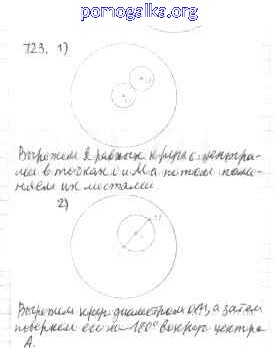 pomogalka.org
723. 1)
Вырежем 2 равных круга с центра-
ми в точках O и M а потом поме-
няем их местами.
2)
M
A
O
Вырежем круг диаметром OM, а затем
повернем его на 180° вокруг центра
A.